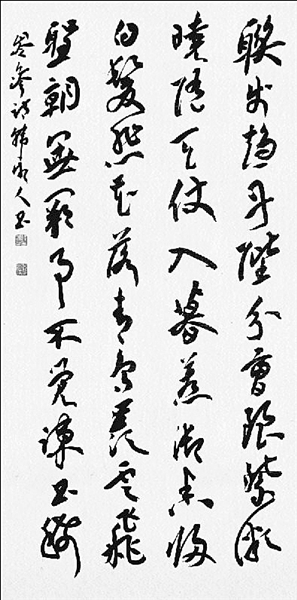 聯步趨丹陛分曹限紫微
曉隨天仗入暮惹御香歸
白髮悲花落青鳥羨雲飛
聖朝無闕事不覺諫書稀
岑參詩韓人書